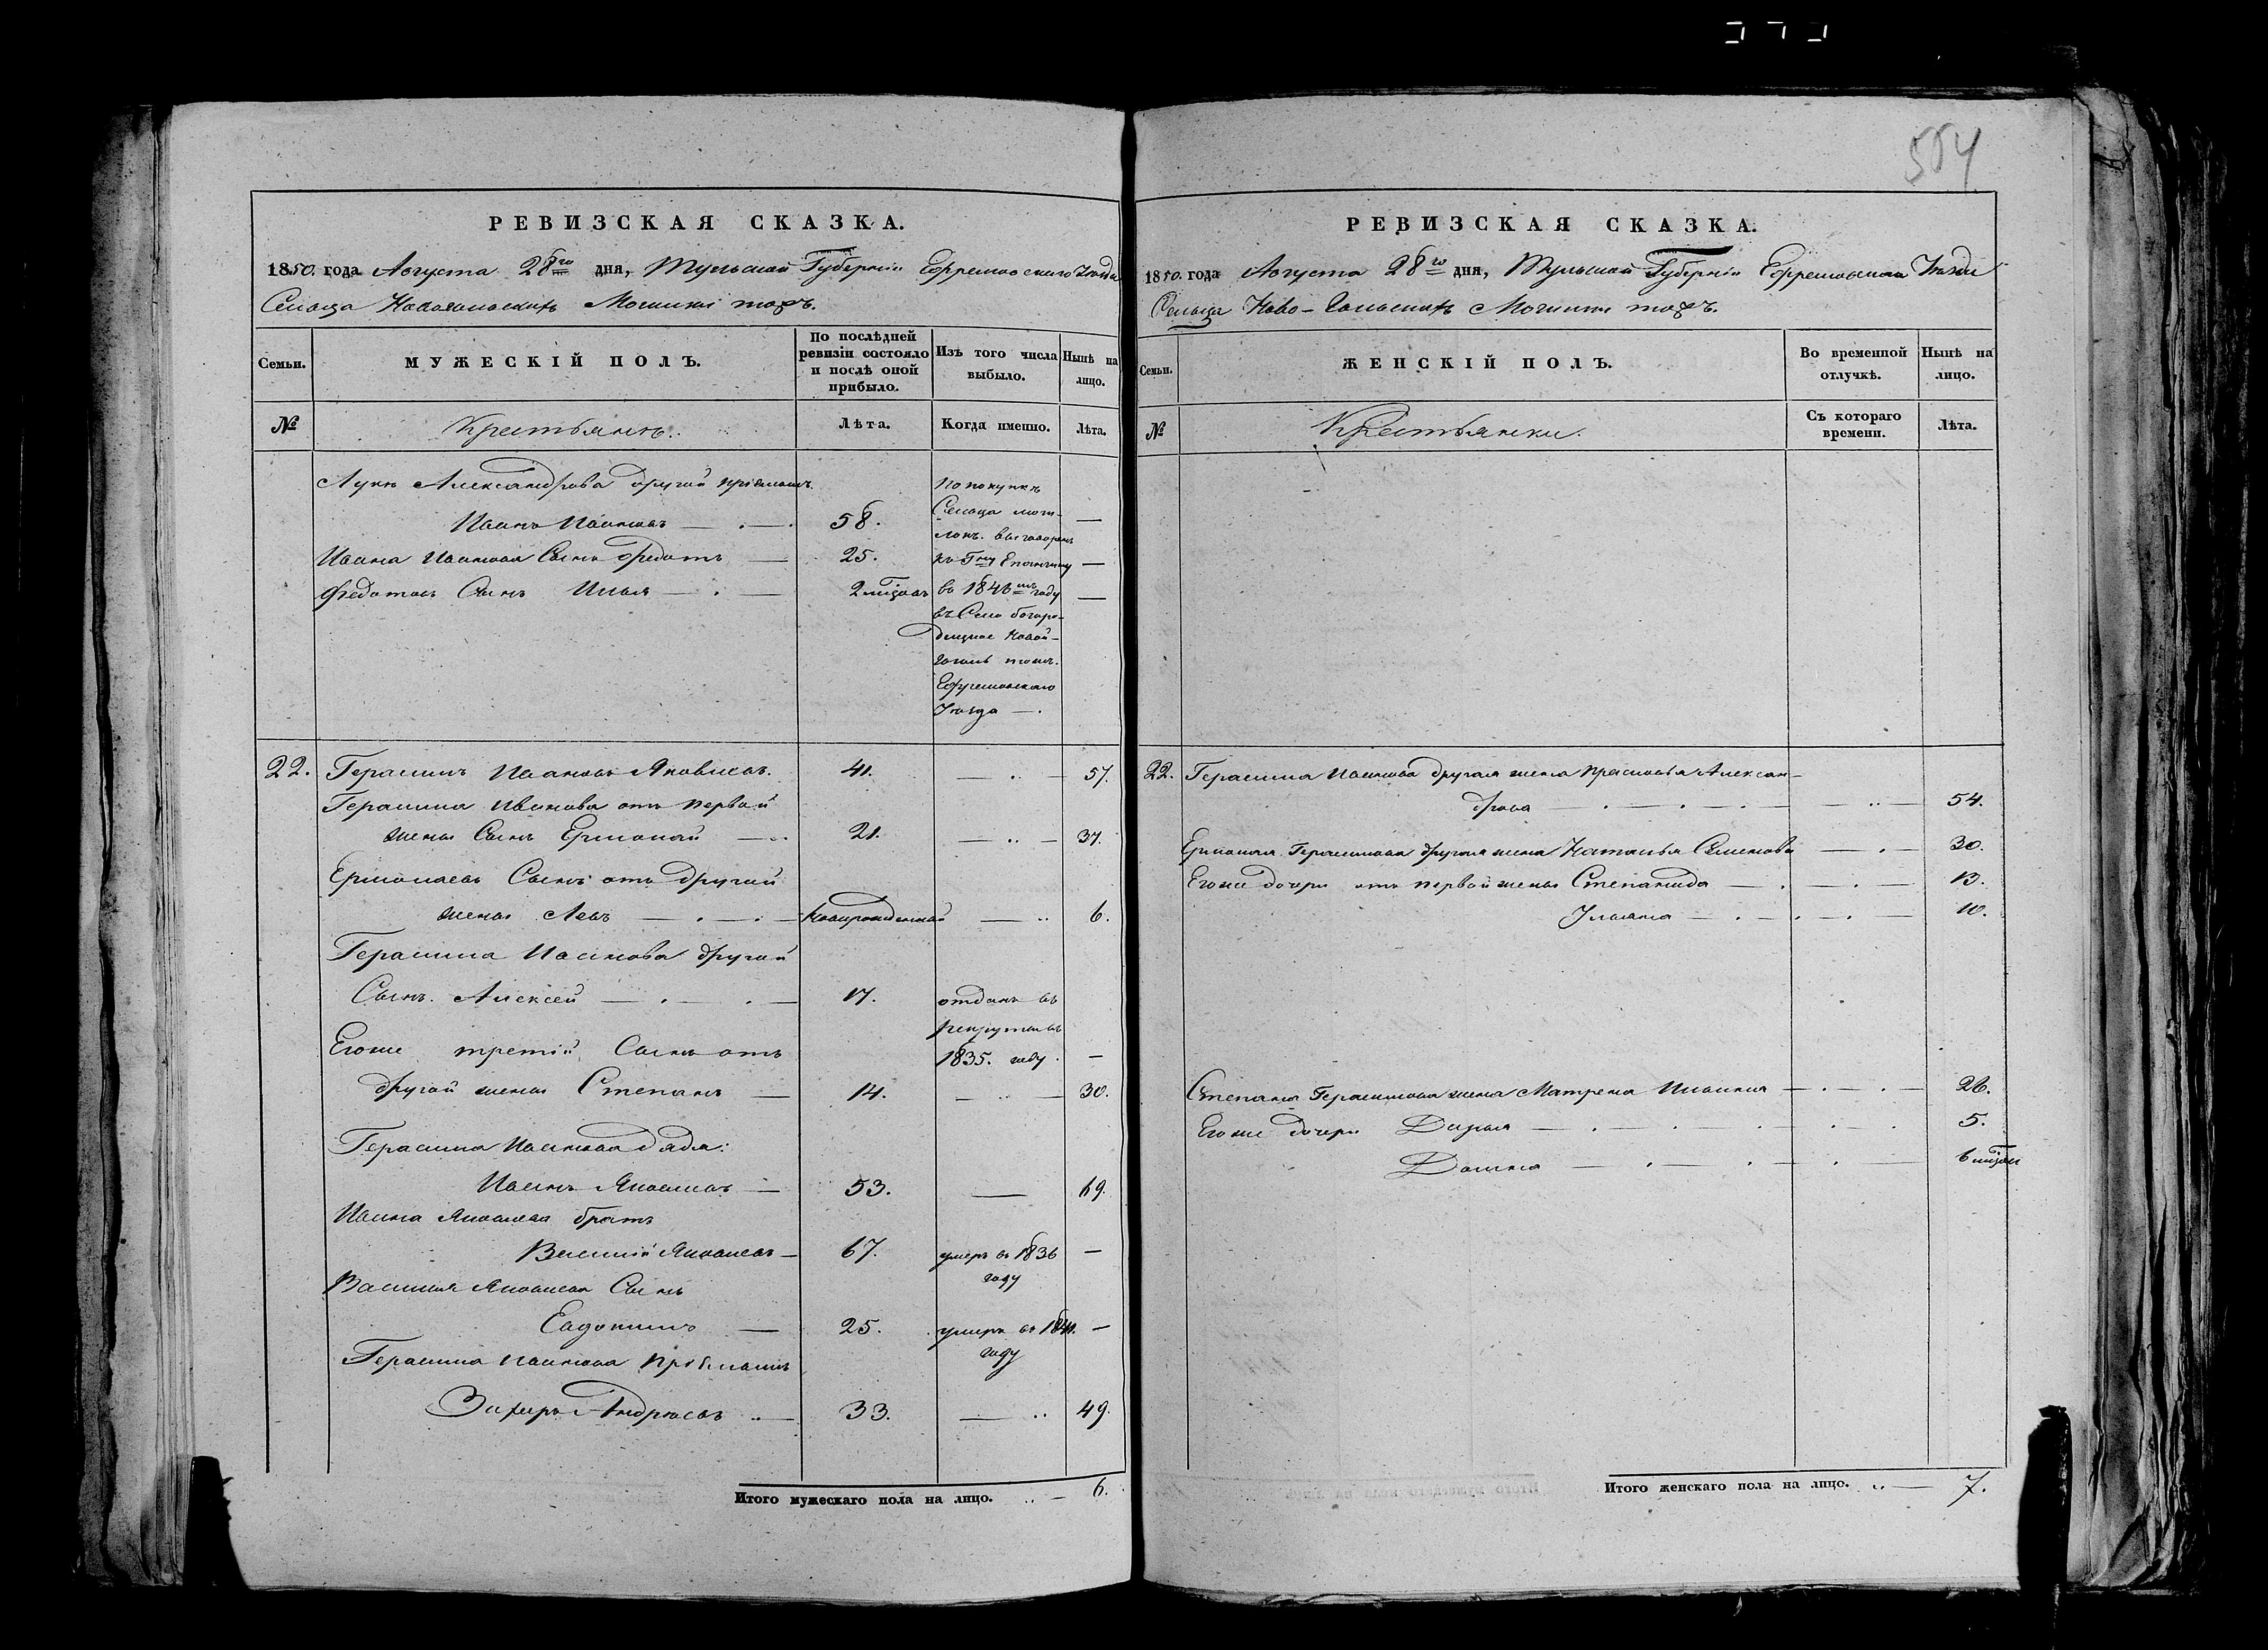 504
РЕВИЗСКАЯ СКАЗКА.
1850. года Августа 28го дня, Тульской Губернiи Ефремовскаго Уезда
Сельца Могилки тожъ.
Семьи.
МУЖЕСКІЙ ПОЛЪ.
По послѣдней ревизіи состояло и послѣ оной прибыло.
Изъ того числа выбыло.
Нынѣ на лицо.
№
Крестьянъ.
Лѣта.
Когда именно.
Лѣта.
Луки Александрова другой прiемышъ
Иванъ Ивановъ 58.
Ивана Иванова Сынъ Федотъ 25.
Федотовъ Сынъ Илья 2 мѣс.
По покупкѣ
Сельца Моги-
локъ. выговорены
къ Гну Епанчину
въ 1846мъ году
въ Село богоро-
дицкое Новой-
тожъ.
Ефремовскаго
Уезда
22. Герасимъ Ивановъ Яковлевъ. 41. 57.
Герасима Иванова отъ первой
жены Сынъ Ермолай 21. 37.
Ермолаевъ Сынъ отъ другой
жены Левъ новорожденной 6.
Герасима Иванова другой
Сынъ. Алексей 17. отданъ въ
рекруты въ
1835. году.
Егоже третiй Сынъ отъ
другой жены Степанъ 14. 30.
Герасима Иванова дядя:
Иванъ Яковлевъ 53. 69.
Ивана Яковлева братъ
Василiй Яковлевъ 67. умеръ въ 1836
году
Василья Яковлева Сынъ
Евдокимъ 25. умеръ въ 1841.
году
Герасима Иванова прiемышъ
Захаръ Андреевъ 33. 49.
Итого мужескаго пола на лицо. 6.
РЕВИЗСКАЯ СКАЗКА.
1850. года Августа 28го дня, Тульской Губернiи Ефремовскаго Уезда
Сельца Ново- Могилки тожъ.
Семьи.
ЖЕНСКІЙ ПОЛЪ.
Во временной отлучкѣ.
Нынѣ на лицо.
№
Крестьянки.
Съ котораго времени.
Лѣта.
22. Герасима Иванова другая жена Прасковья Алексан-
дрова 54.
Ермолая Герасимова другая жена Наталья Семенова 30.
Егоже дочери отъ первой жены Степанида 13.
Ульяна 10.
Степана Герасимова жена Матрена Ильина 26.
Егоже дочери Дарья 5.
Домна 6 мѣс.
Итого женскаго пола на лицо. 7.